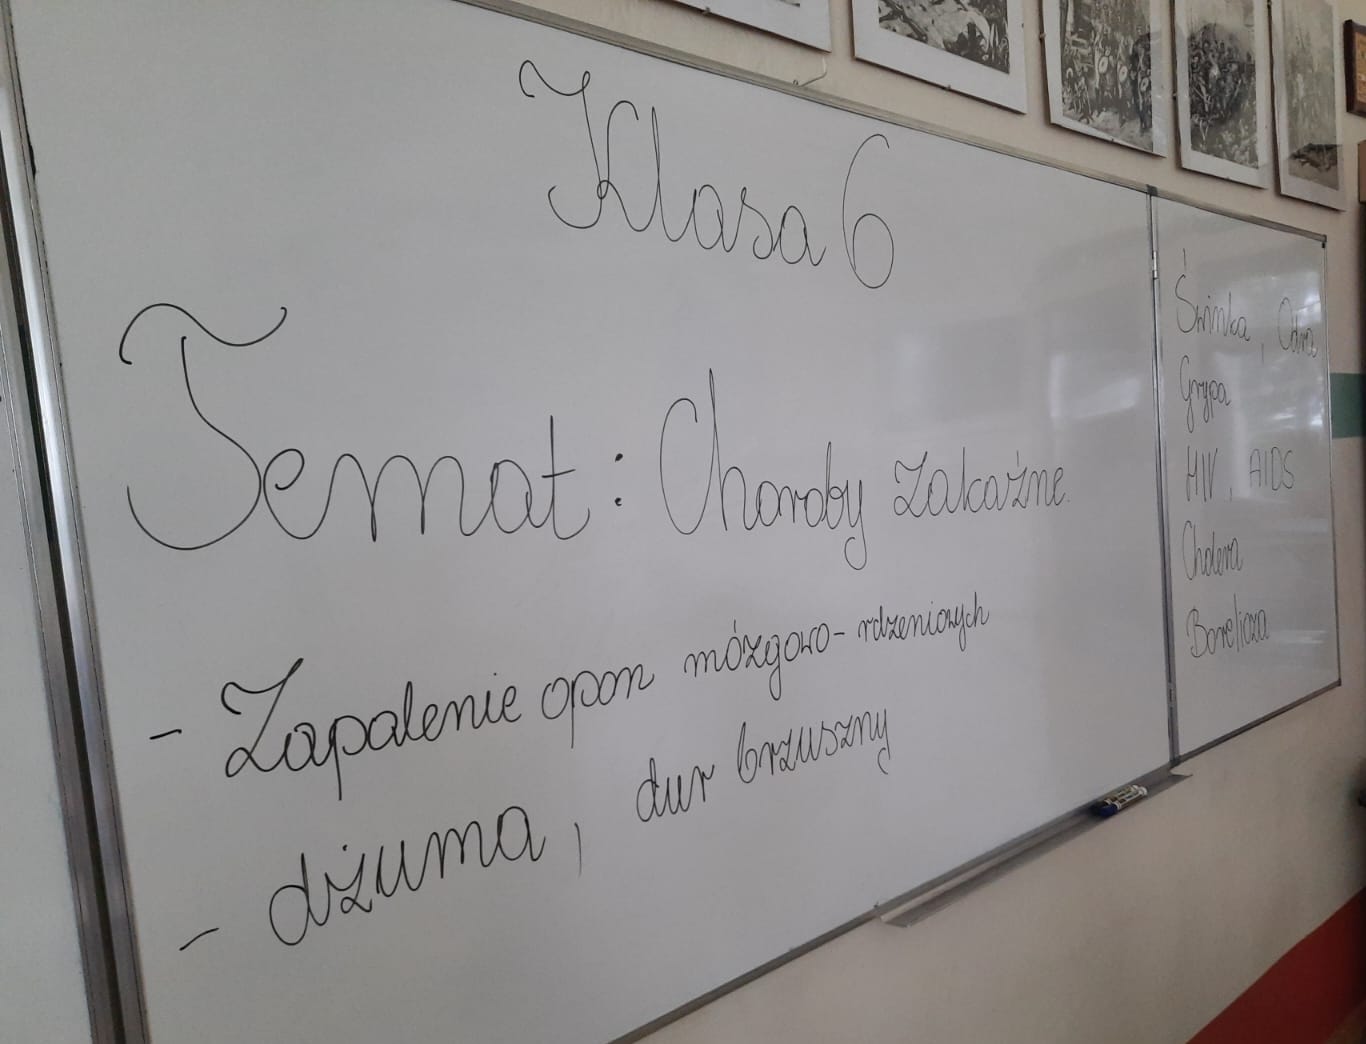 Klasa 6
Temat: Choroby zakaźne.
- Zapalenie opon mózgowo-rdzeniowych
- dżuma, dur brzuszny
Świnka, Odra
Grypa
HIV, AIDS
Cholera
Borelioza